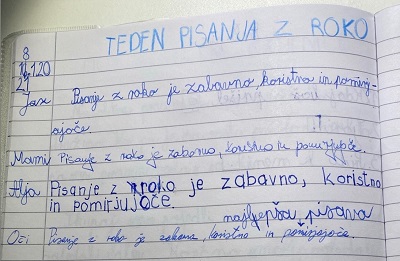 TEDEN PISANJA Z ROKO
Jax Pisanje z roko je zabavno, koristno in pomirj-
ajoče.
Mami Pisanje z roko je zabavno, koristno in pomirjujoče.
Alja Pisanje z roko je zabavno, koristno
in pomirjujoče
najljepša pisava
Oči Pisanje z roko je zabavno, koristno in pomirjajoče.